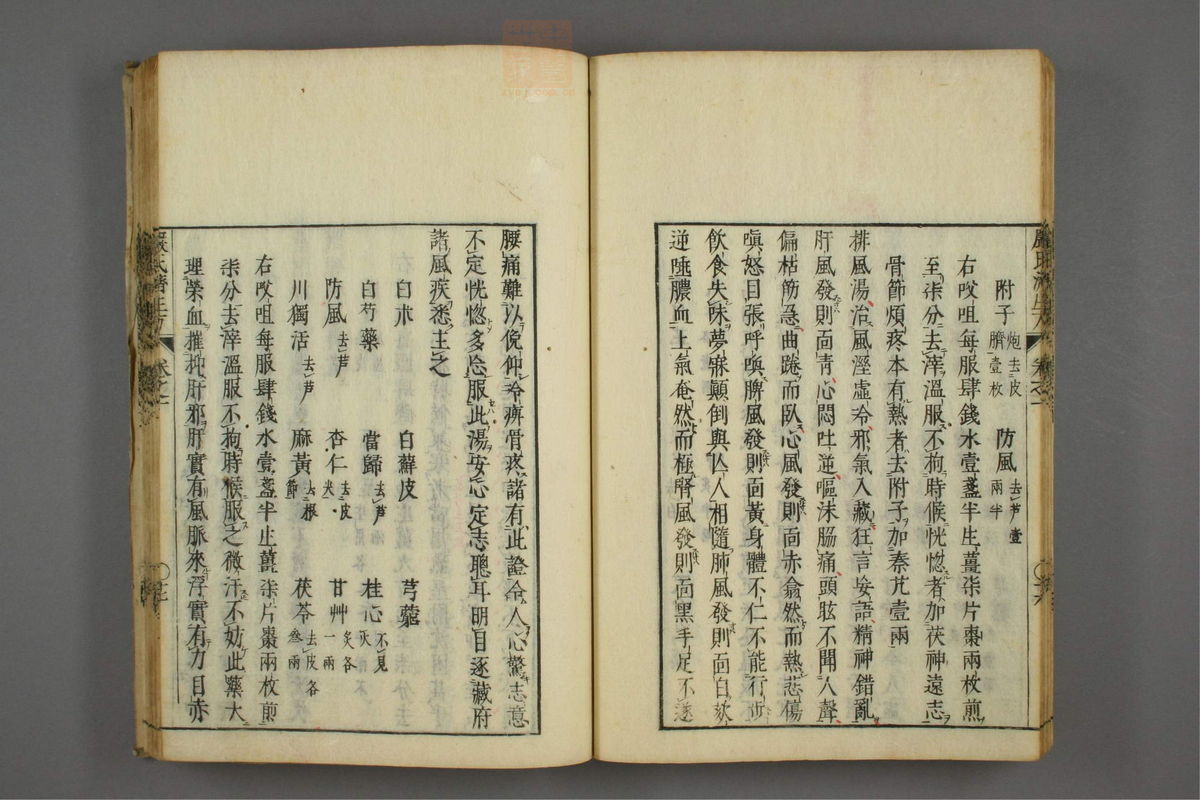 附子炮去皮臍壹枚 防風去芦壹兩半
右㕮咀每服肆錢水壹盞半生薑柒片棗兩枚煎
至柒分去滓溫服不拘時候恍惚者加茯神遠志
骨節煩疼本有熱者去附子加秦艽壹兩
排風湯治風溼虛冷邪氣入藏狂言妄語精神錯亂
肝風發則面青心悶吐逆嘔沫脇痛頭眩不聞人聲
偏枯筋急曲踡而臥心風發則面赤翕然而熱悲傷
嗔怒目張呼喚脾風發則面黃身體不仁不能行步
飲食失味夢寐顛倒與亾人相隨肺風發則面白欬
逆唾膿血上氣奄然而極腎風發則面黑手足不遂
腰痛難以俛仰冷痹骨疼諸有此證令人心驚志意
不定恍惚多忘服此湯安心定志聰耳明目逐藏府
諸風疾悉主之
白朮 白蘚皮 芎藭
白芍藥 當歸去芦 桂心不見火
防風去芦 杏仁去皮尖 甘艸炙各一兩
川獨活去芦 麻黃去根節 茯苓去皮各叁兩
右㕮咀每服肆錢水壹盞半生薑柒片棗兩枚煎
柒分去滓溫服不拘時候服之微汗不妨此藥大
理榮血摧抑肝邪肝實有風脈來浮實有力目赤